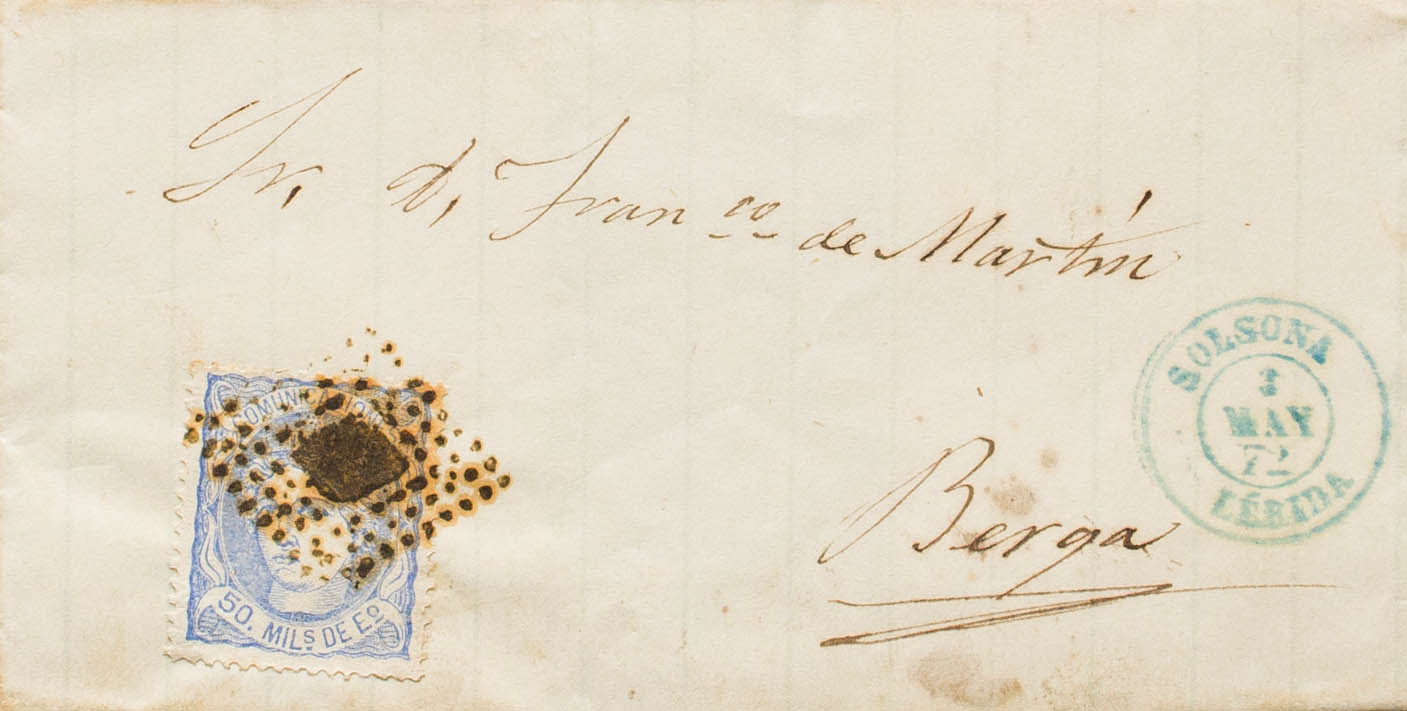 Sr. D. Franco de Martín
Berga
SOLSONA
3
MAY
72
LÉRIDA
COMUNICACIONES
50. MILS DE Eo